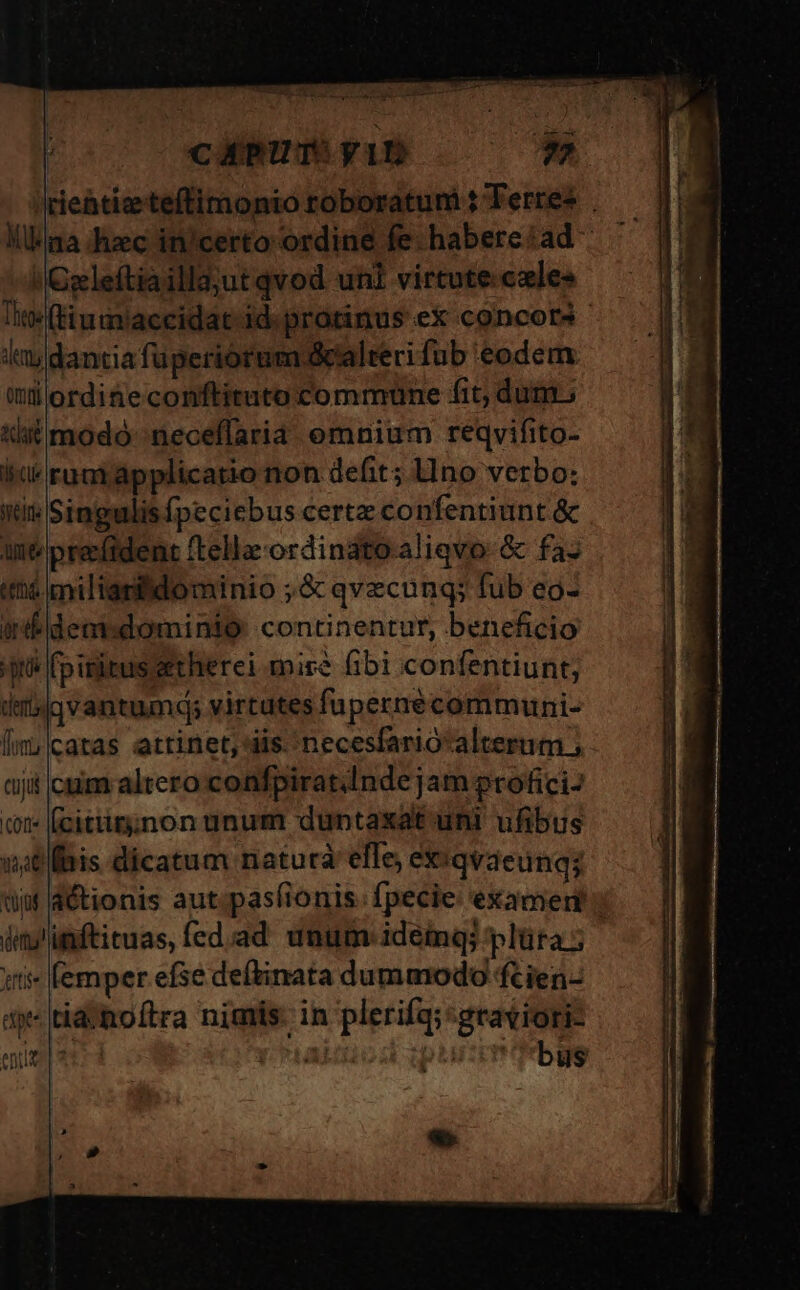 CAPUT VII 77
rientiæ teſtimonio roboratum: Terre-
na hæc in certo ordine ſe habere ad
Cæleſtia illa, ut qvod uni virtute cæle-
ſtium accidat id protinus ex concor-
dantia ſuperiorum & alteri ſub eodem
ordine conſtituto commune fit, dum
modò neceſſaria omnium reqviſito-
rum applicatio non deſit; Uno verbo:
Singulis ſpeciebus certæ conſentiunt &
præſident ſtellæ ordinato aliqvo & fa-
miliari dominio; & qvæcunq; ſub eo-
dem dominio continentur, beneficio
ſpiritus ætherei mirè ſibi conſentiunt,
qvantumq; virtutes ſupernè communi-
catas attinet, iis necesſariò alterum
cum altero conſpirat. Inde jam profici-
ſcitur, non unum duntaxat uni uſibus
ſuis dicatum naturâ eſſe, ex qvacunq;
actionis aut pasſionis ſpecie examen
inſtituas, ſed ad unum idemq; plura
ſemper eſse deſtinata dummodo ſcien-
tia noſtra nimis in pleriſq; graviori-
bus